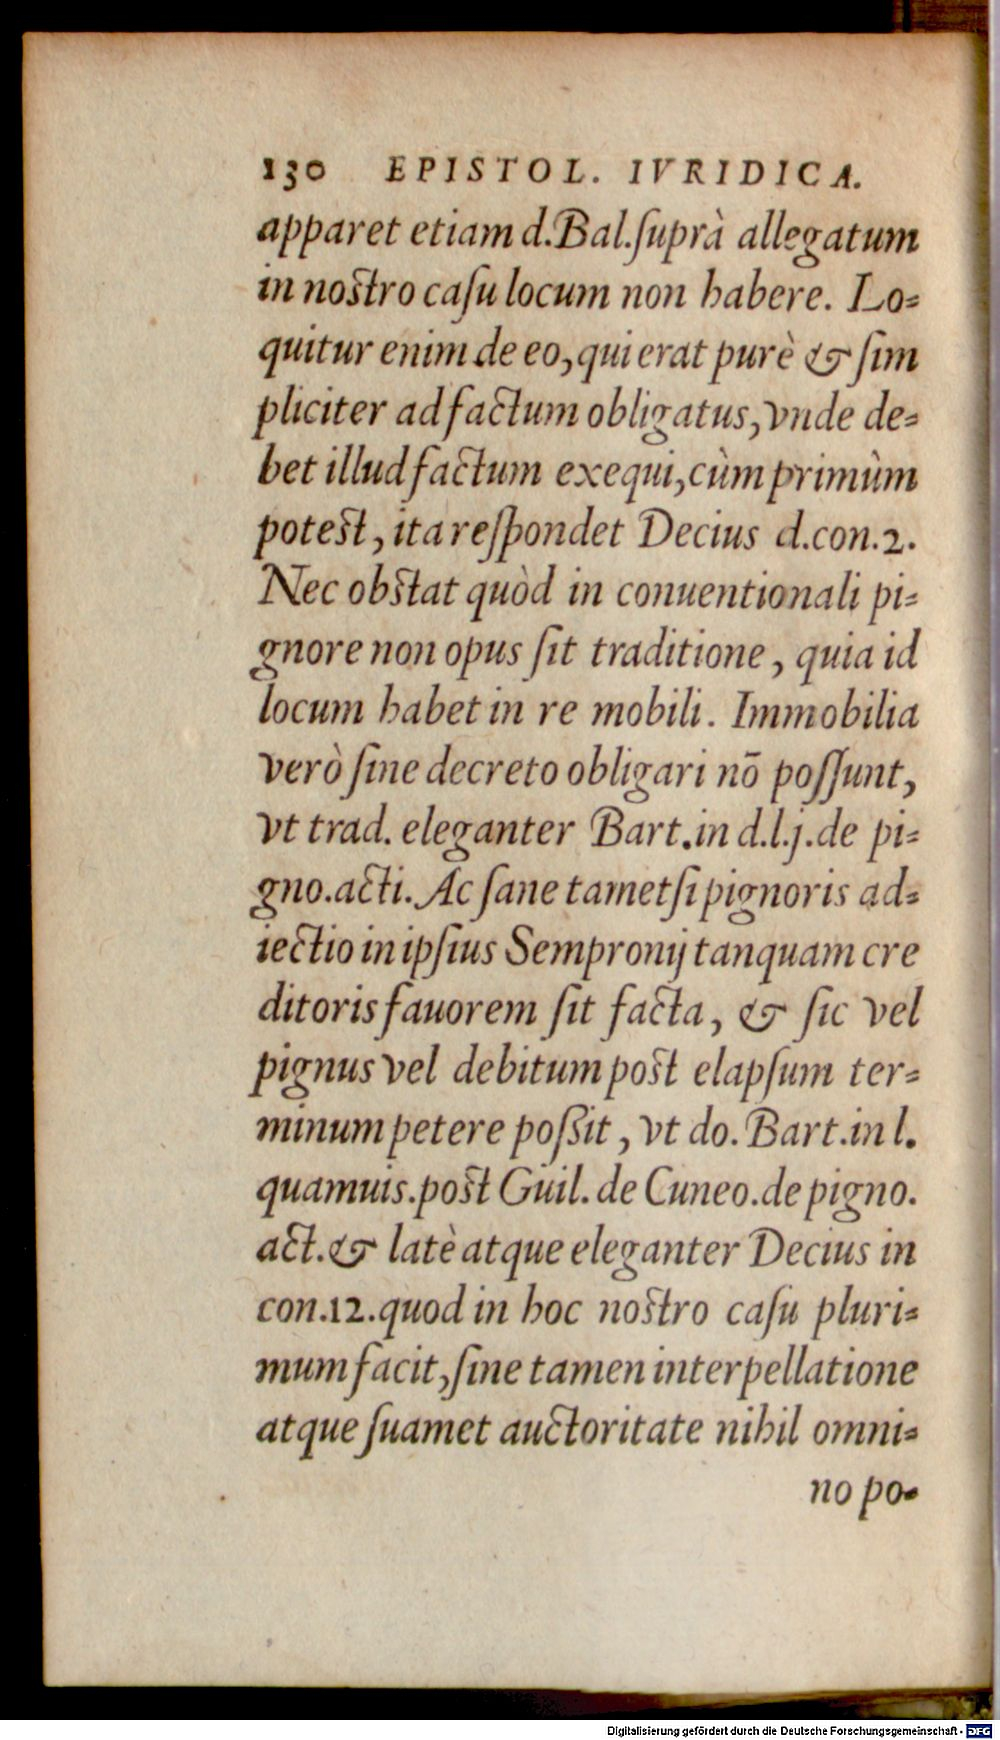 130 EPISTOL. IVRIDICA.
apparet etiam d.Bal.ſuprà allegatum
in nostro caſu locum non habere. Lo-
quitur enim de eo, qui erat purè & ſim
pliciter ad factum obligatus, vnde de-
bet illud factum exequi, cùm primùm
potest, ita reſpondet Decius d.con.2.
Nec obstat quòd in conuentionali pi-
gnore non opus ſit traditione, quia id
locum habet in re mobili. Immobilia
verò ſine decreto obligari nō poſſunt,
vt trad. eleganter Bart.in d.l.j.de pi-
gno.acti. Ac ſane tametſi pignoris ad-
iectio in ipſius Sempronij tanquam cre
ditoris fauorem ſit facta, & ſic vel
pignus vel debitum post elapſum ter-
minum petere poſsit, vt do. Bart.in l.
quamuis.post Guil. de Cuneo.de pigno.
act.& latè atque eleganter Decius in
con.12.quod in hoc nostro caſu pluri-
mum facit, ſine tamen interpellatione
atque ſuamet auctoritate nihil omni-
no po-
Digitalisierung gefördert durch die Deutsche Forschungsgemeinschaft - DFG